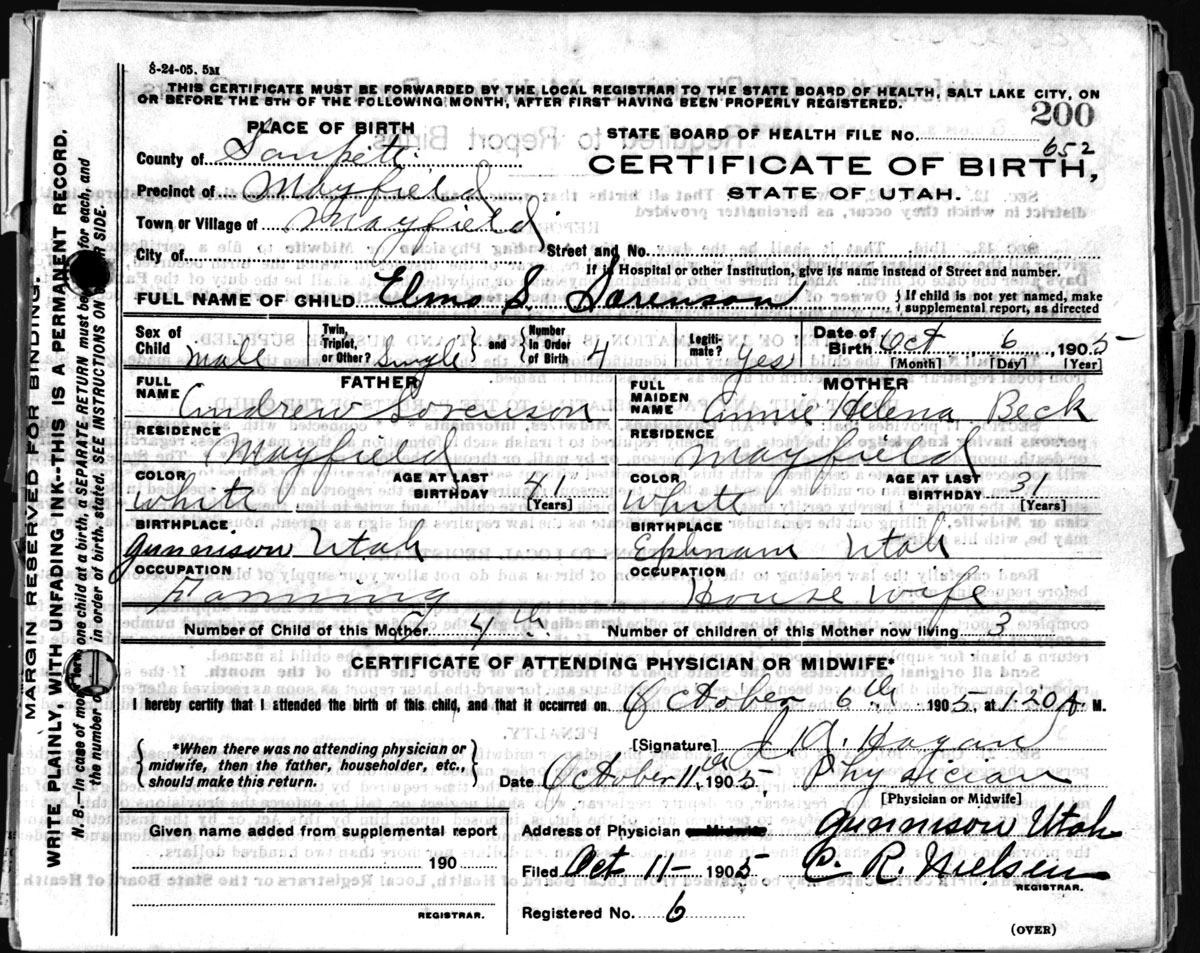 8-24-05. 5M
THIS CERTIFICATE MUST BE FORWARDED BY THE LOCAL REGISTRAR TO THE STATE BOARD OF HEALTH, SALT LAKE CITY, ON
OR BEFORE THE 5TH OF THE FOLLOWING MONTH, AFTER FIRST HAVING BEEN PROPERLY REGISTERED.
200
PLACE OF BIRTH
STATE BOARD OF HEALTH FILE No. 652
County of Sanpete
CERTIFICATE OF BIRTH,
Precinct of Mayfield
STATE OF UTAH.
Town or Village of Mayfield
City of Street and No.
If in Hospital or other Institution, give its name instead of Street and number.
FULL NAME OF CHILD Elmo S. Sorenson
If child is not yet named, make
supplemental report, as directed
Sex of Child male Twin, Triplet, or Other? Single and Number In Order of Birth 4 Legiti-mate? Yes Date of Birth Oct 6, 1905
[Month] [Day] [Year]
FATHER
FULL NAME Andrew Sorenson
RESIDENCE Mayfield
COLOR White AGE AT LAST BIRTHDAY 41
[Years]
BIRTHPLACE
Gunnison Utah
OCCUPATION
Farming
MOTHER
FULL MAIDEN NAME Annie Helena Beck
RESIDENCE Mayfield
COLOR White AGE AT LAST BIRTHDAY 31
[Years]
BIRTHPLACE
Ephraim Utah
OCCUPATION
House Wife
Number of Child of this Mother 4th Number of children of this Mother now living 3
CERTIFICATE OF ATTENDING PHYSICIAN OR MIDWIFE*
I hereby certify that I attended the birth of this child, and that it occurred on October 6th 1905, at 1.20 A. M.
*When there was no attending physician or
midwife, then the father, householder, etc.,
should make this return.
[Signature] J. A. Hagan
Date October 11th 1905. Physician
[Physician or Midwife]
Given name added from supplemental report
190
REGISTRAR.
Address of Physician Midwife Gunnison Utah
Filed Oct 11- 1905 C. R. Nielsen
REGISTRAR.
Registered No. 6
(OVER)
MARGIN RESERVED FOR BINDING.
WRITE PLAINLY WITH UNFADING INK--THIS IS A PERMANENT RECORD.
N. B.—In case of more one child at birth, a SEPARATE RETURN must be for each, and
the number in order of birth stated. SEE INSTRUCTIONS ON SIDE.